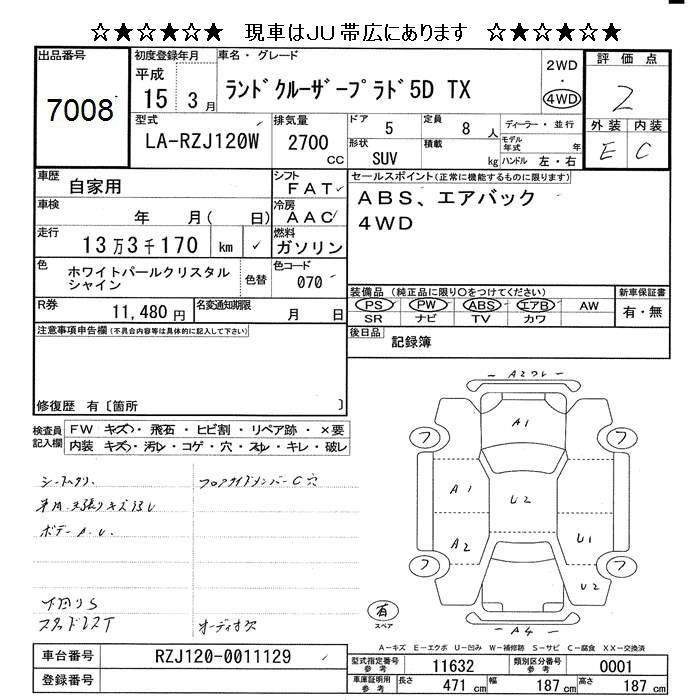 ☆★☆★☆★☆ 現車はJU帯広にあります ☆★☆★☆★☆
出品番号
7008
初度登録年月
平成
15 3月
車名・グレード
ランドクルーザープラド5D TX
2WD
・
4WD
評価点
2
外装 内装
E C
型式
LA-RZJ120W
排気量
2700
CC
ドア
5
定員
8 人
ディーラー・並行
モデル年式 年
形状
SUV
積載
kg
ハンドル 左・右
車歴
自家用
シフト
FAT
車検
年 月( 日)
冷房
AAC
走行
13万3千170 km
燃料
ガソリン
色
ホワイトパールクリスタル
シャイン
色替
色コード
070
R券
11,480 円
名変通知期限
月 日
セールスポイント(正常に機能するものに限ります)
ABS、エアバック
4WD
装備品 (純正品に限り○をつけてください)
PS PW ABS エアB AW
SR ナビ TV カワ
新車保証書
有・無
後日品
記録簿
注意事項申告欄(不具合内容等は具体的に記入して下さい)
修復歴 有〔箇所 〕
検査員
記入欄
FW キズ・飛石・ヒビ割・リペア跡・×要
内装 キズ・汚レ・コゲ・穴・スレ・キレ・破レ
フロアサイドメンバーC穴
ボデーA.U.
下回りS
オーディオ欠
A1
フ フ
A1 U2
A2 U1
フ フ
U2
A4
有
スペア
A-キズ E-エクボ U-凹み W-補修跡 S-サビ C-腐食 XX-交換済
車台番号
RZJ120-0011129
登録番号
型式指定番号
参考
11632
類別区分番号
参考
0001
車庫証明用
参考
長さ
471 cm
幅
187 cm
高さ
187 cm